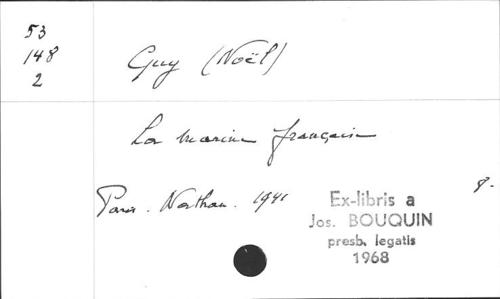 53
148
2
Guy (Noël)
La marine française
Paris. Nathan. 1941
8.
Ex-libris a
Jos. BOUQUIN
presb. legatis
1968